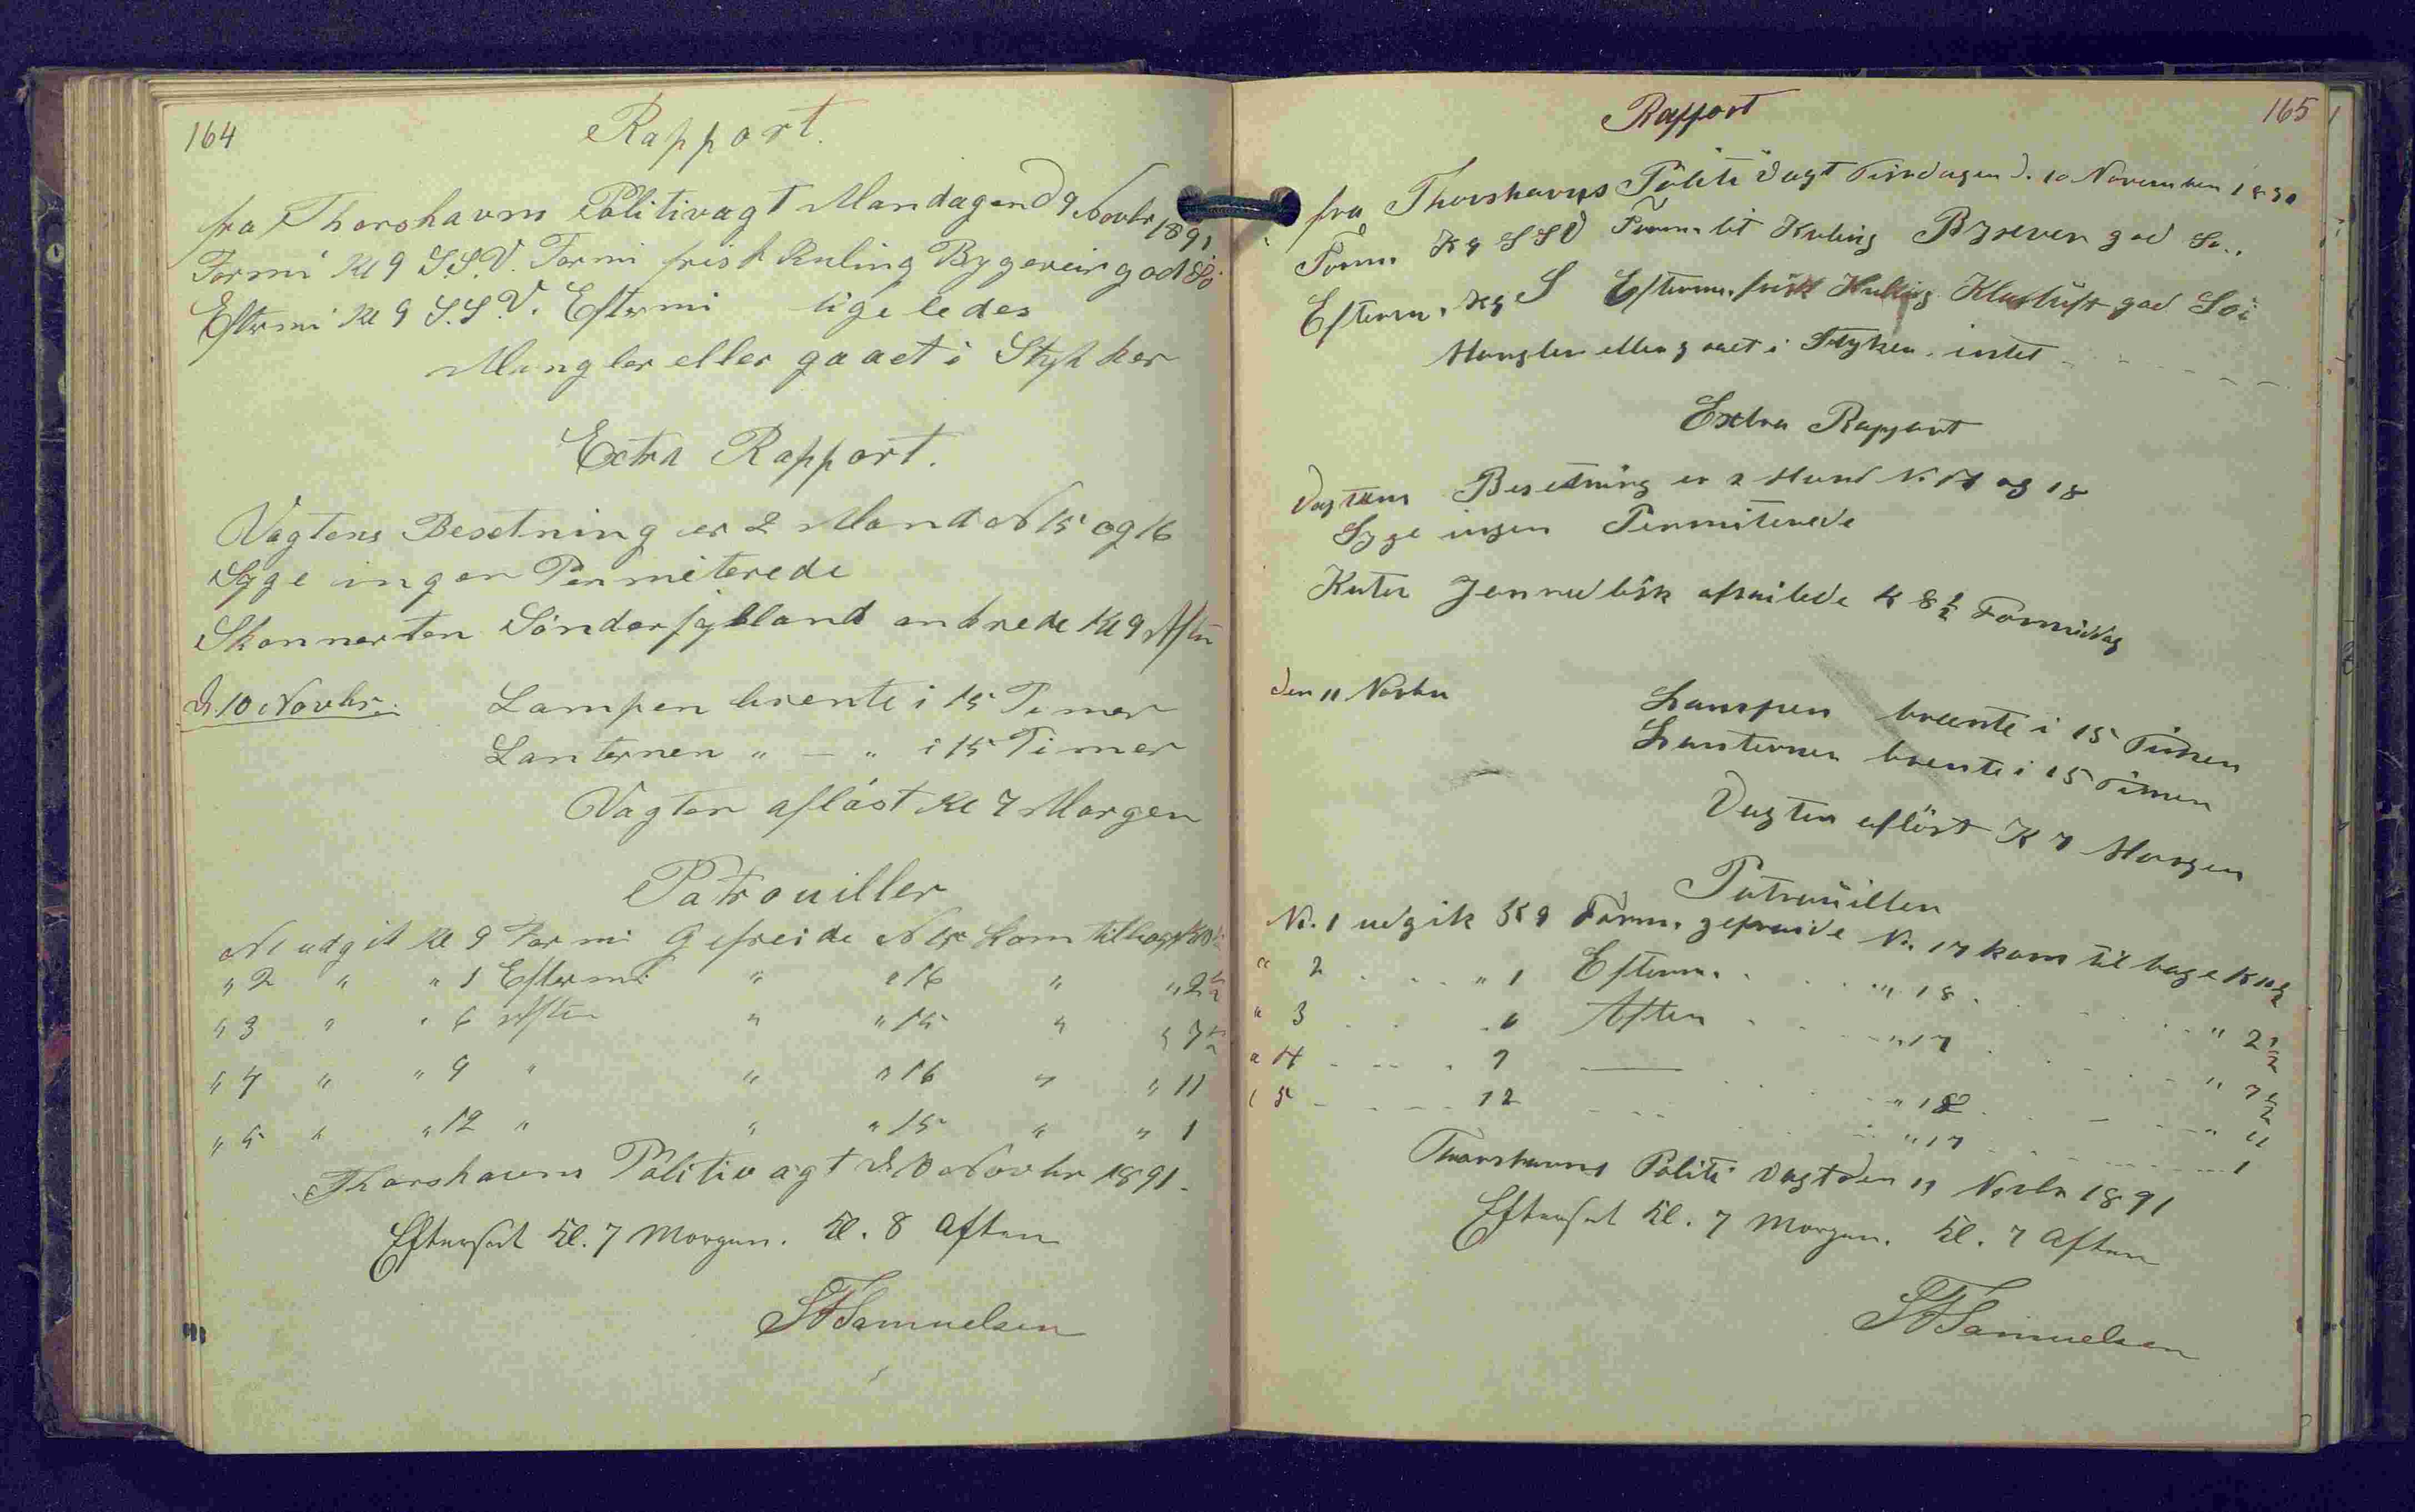 164
Rapport.
fra Thorshavns Politivagt Mandagen d 9 Novbr 1891
Formi Kl 9 S.S.V. Formi frisk Kuling Bygeveir god Sö
Eftermi Kl 9 S.S.V. Eftermi ligeledes
Mangler eller gaaet i Stykker
Extra Rapport.
Vagtens Besetning er 2 Mand N 15 og 16
Syge ingen Permiterede
Skonnerten Sönderjylland ankrede Kl 9 Aften
d. 10 Novbr. Lampen brente i 15 Timer
Lanternen " — " i 15 Timer
Vagten aflöst Kl 7 Morgen
Patrouiller
N 1 udgik Kl 9 Formi Gefreide N 15 kom tilbage Kl
" 2 " " 1 Eftermi " " 16 " " 2 1/2
" 3 " " 6 Aften " " 15 " " 7 1/2
" 4 " " 9 " " " 16 " " 11
" 5 " " 12 " " " 15 " " 1
Thorshavns Politivagt d. 10 Novbr 1891.
Efterset Kl. 7 Morgen. Kl. 8 Aften
SFSamuelsen
165
Rapport
fra Thorshavns Politi Vagt Tirsdagen d. 10 November
Form. K 9 SSV Form. let Kuling god So..
Efterm. K 9 S Efterm. frisk Kuling god Söi
Mangler eller gaaet i Styker intet
Extra Rapport
Vagtens Besetning er 2 Mand N. 17 og 18
Syge ingen Permiterede
Kuter afseilede K 8 1/2 Formiddag
den 11 Novbr Lampen brente i 15 Timer
Lanternen brente i 15 Timer
Vagten aflöst K 7 Morgen
Patrouiller
No. 1 udgik K 9 Form. gefreide No. 17 kom til bage K 10 1/2
" 2 . . . " 1 Efterm. . . . " 18 . . . " 2 1/2
" 3 . . . 6 Aften . . . " 17 . . . " 7 1/2
" 4 - - - . 9 —— . . . " 18 . . . " 11
" 5 - - - - 12 - - . . . " 17 . . . 1
Thorshavns Politi Vagt den 11 Novbr 1891
Efterset Kl. 7 Morgen. Kl. 7 Aften
SFSamuelsen